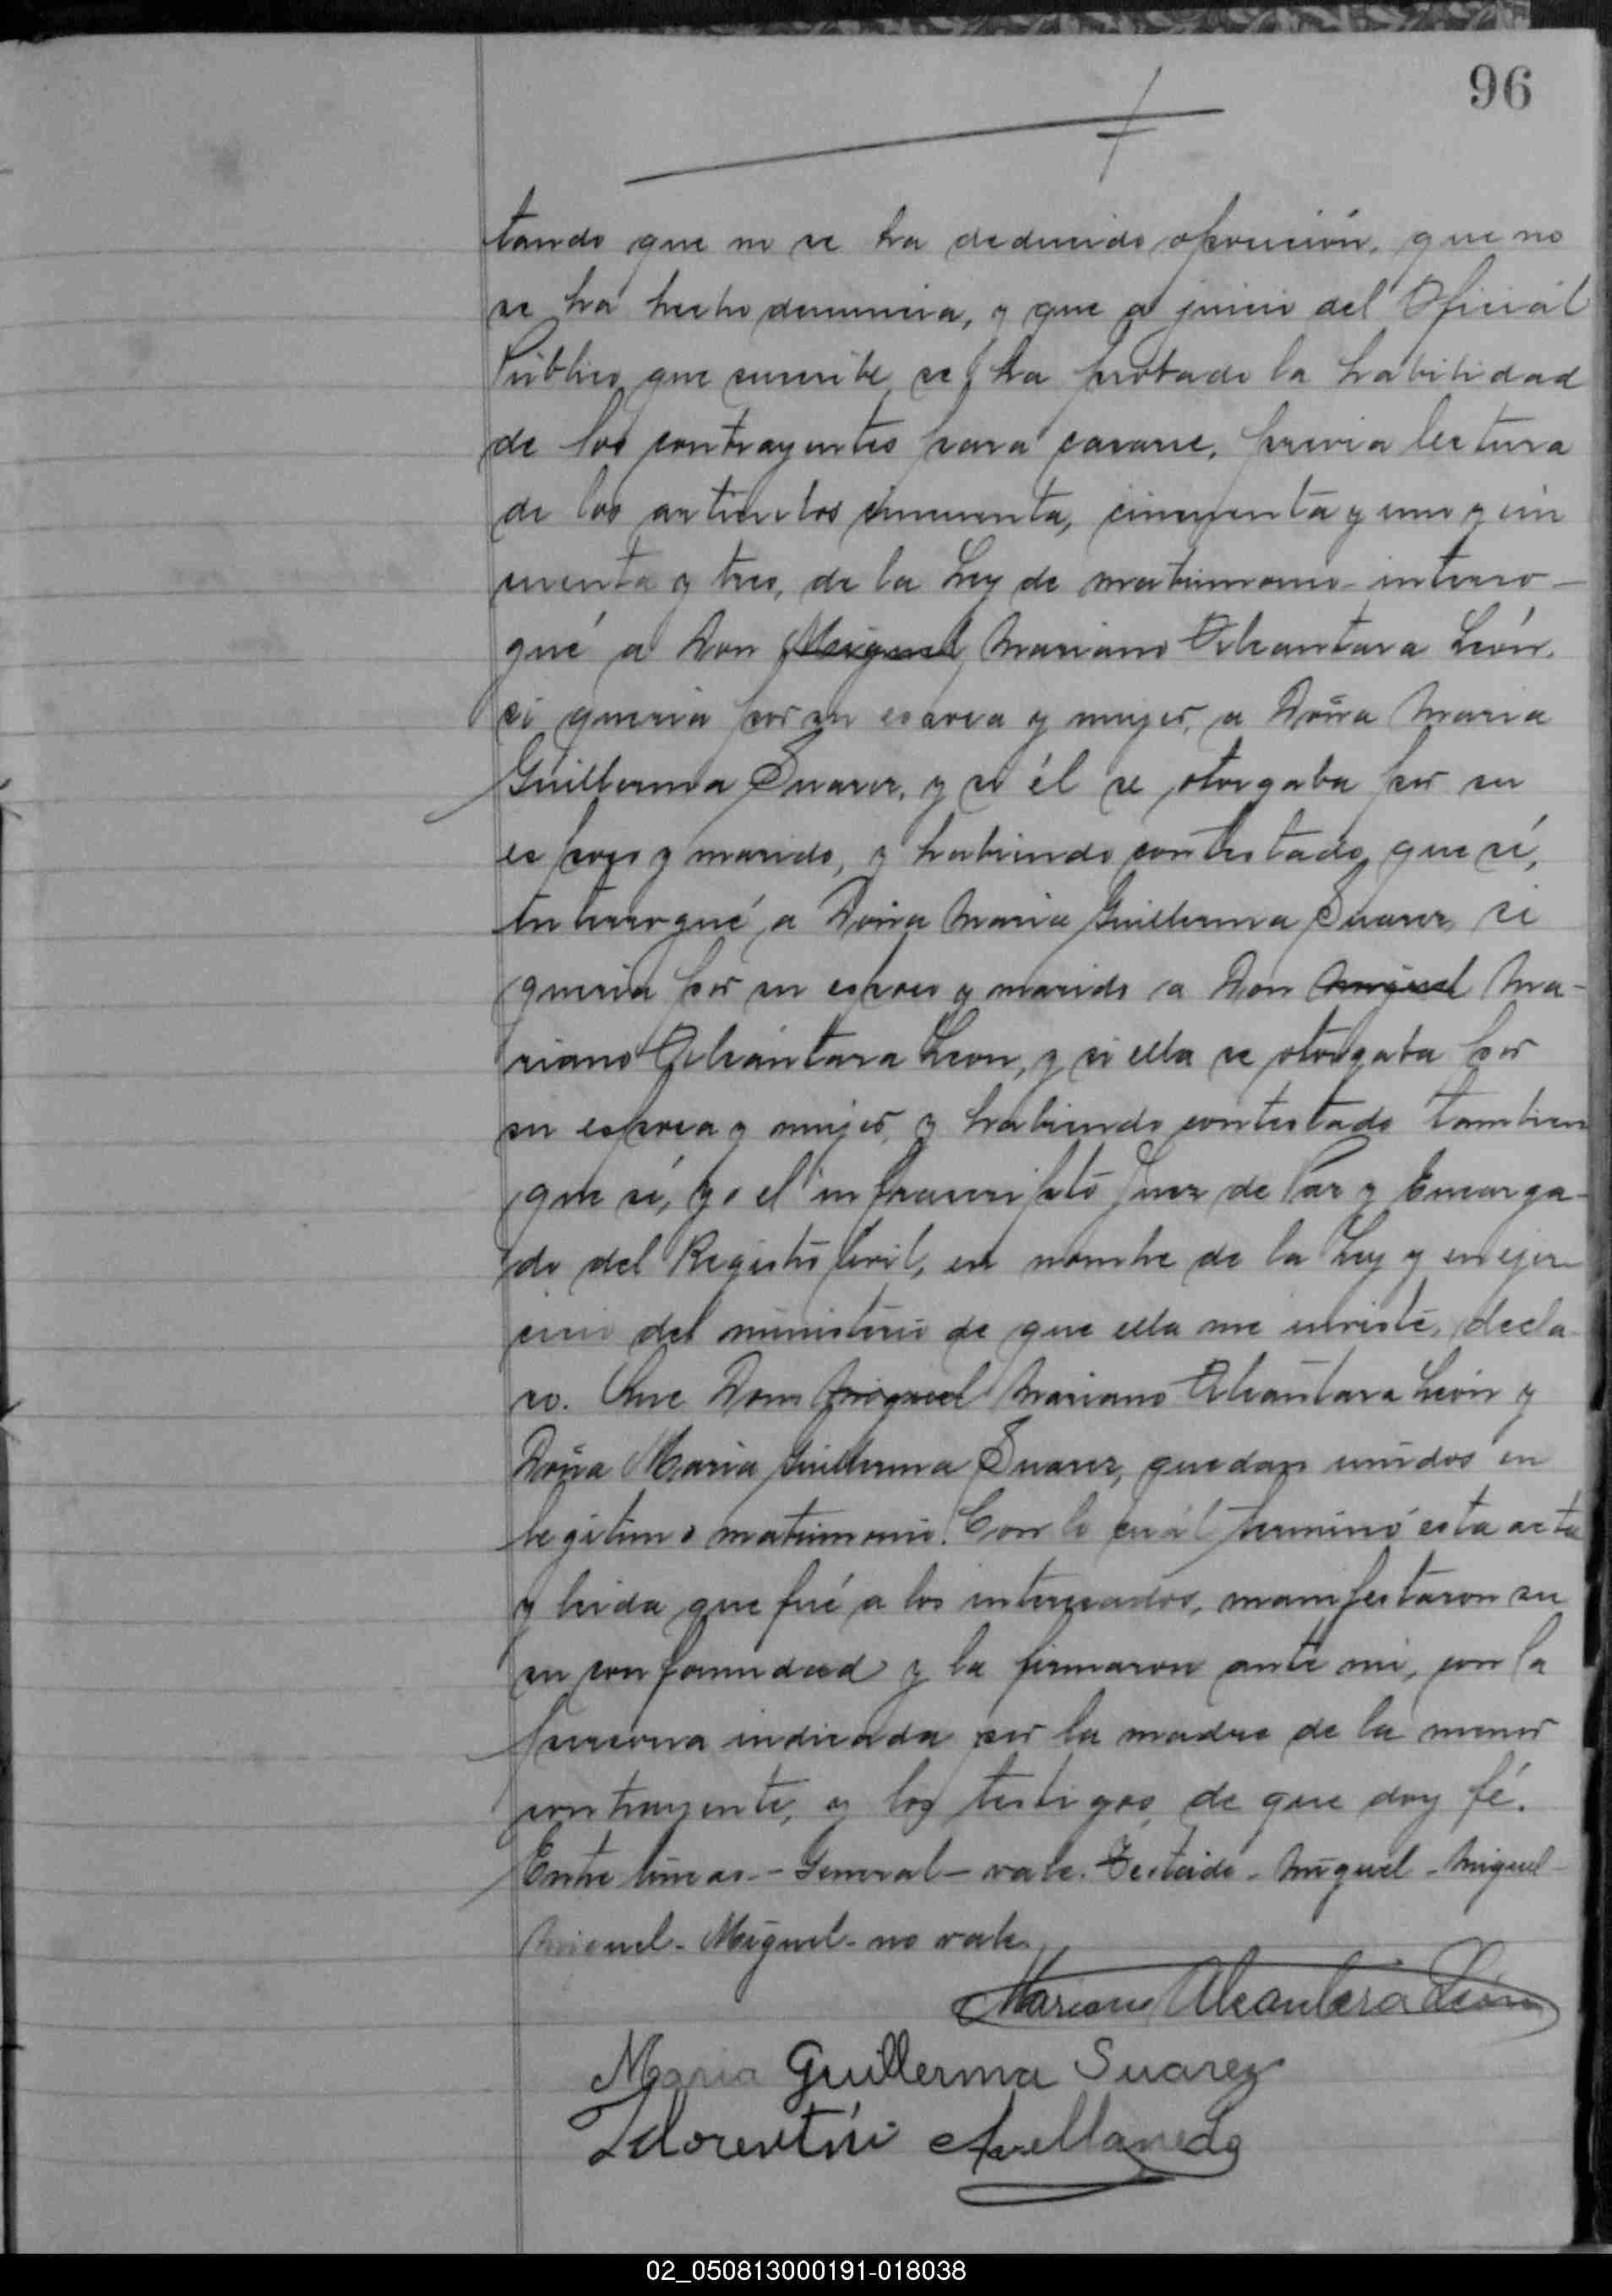 96
tando que no se ha deducido oposición, que no
se ha hecho denuncia, y que a juicio del Oficiál
Público que suscribe, se ha probado la habilidad
de los contrayentes para casarse, previa lectura
de los artículos cincuenta, cincuenta y uno y cin
cuenta y tres, de la Ley de matrimonio interro-
gué a Don Miguel Mariano Alcantara León.
si queria por su esposa y mujer, a Doña Maria
Guillerma Suarez, y si él se otorgaba por su
esposo y marido, y habiendo contestado que sí,
interrogué a Doña Maria Guillerma Suarez si
queria por su esposo y marido a Don Miguel Ma-
riano Alcántara Leon, y si ella se otorgaba por
su esposa y mujer, y habiendo contestado tambien
que sí, yo el infrascripto Juez de Paz y Encarga-
do del Registro Civil, en nombre de la Ley y en ejer-
cicio del ministerio de que ella me inviste, decla-
ro. Que Don Miguel Mariano Alcántara León y
Doña Maria Guillerma Suarez, quedan unidos en
legitimo matrimonio. Con lo cuál terminó esta acta
y leida que fué a los interesados, manifestaron su
su conformidad y la firmaron ante mi, con la
persona indicada por la madre de la menor
contrayente, y los testigos, de que doy fé.
Entre lineas - General - vale. Testado - Miguel - Miguel -
Miguel - Miguel - no vale.
Mariano Alcantara León
Maria Guillerma Suarez
Florentin Avellaneda
02_050813000191-018038